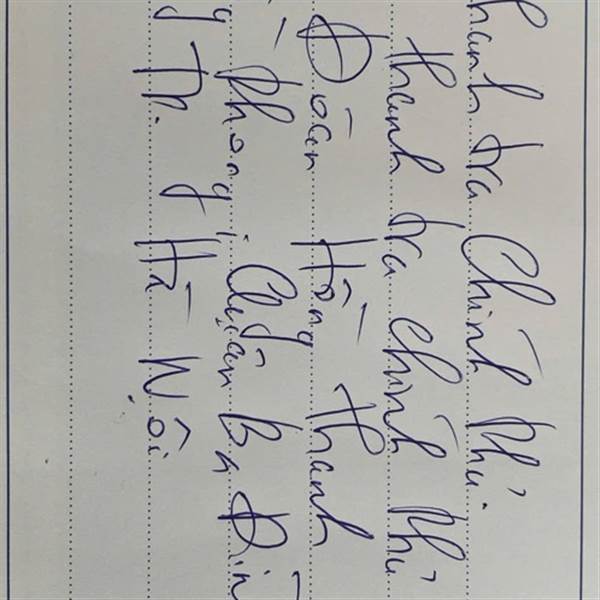 hanh tra Chính Phủ.
thanh tra chính Phủ
Đoàn Hồng thanh
Phong, Quận Ba Đìn
TP. Hà Nội